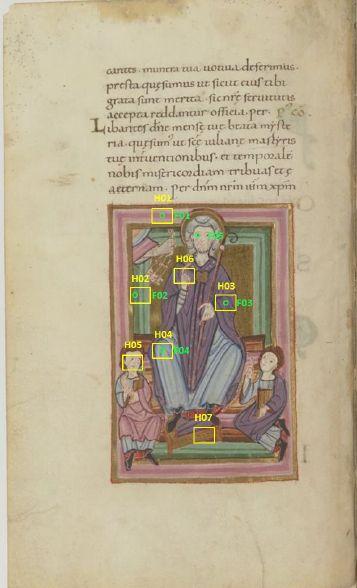 cantes. munera tua uotiua deferimus.
presta quęsumus ut sicut eius tibi
grata sunt merita. sic nr̄e seruitutis
accepta reddantur officia. per.
Libantes dn̄e mensę tuę beata myste
ria. quęsumꝰ ut sc̄i iuliani martyris
et temporalē
nobis misericordiam tribuas et
aeternam. per dn̄m nr̄m xp̄m
F01
H06
H02
F02
H03
F03
H04
F04
H05
H07